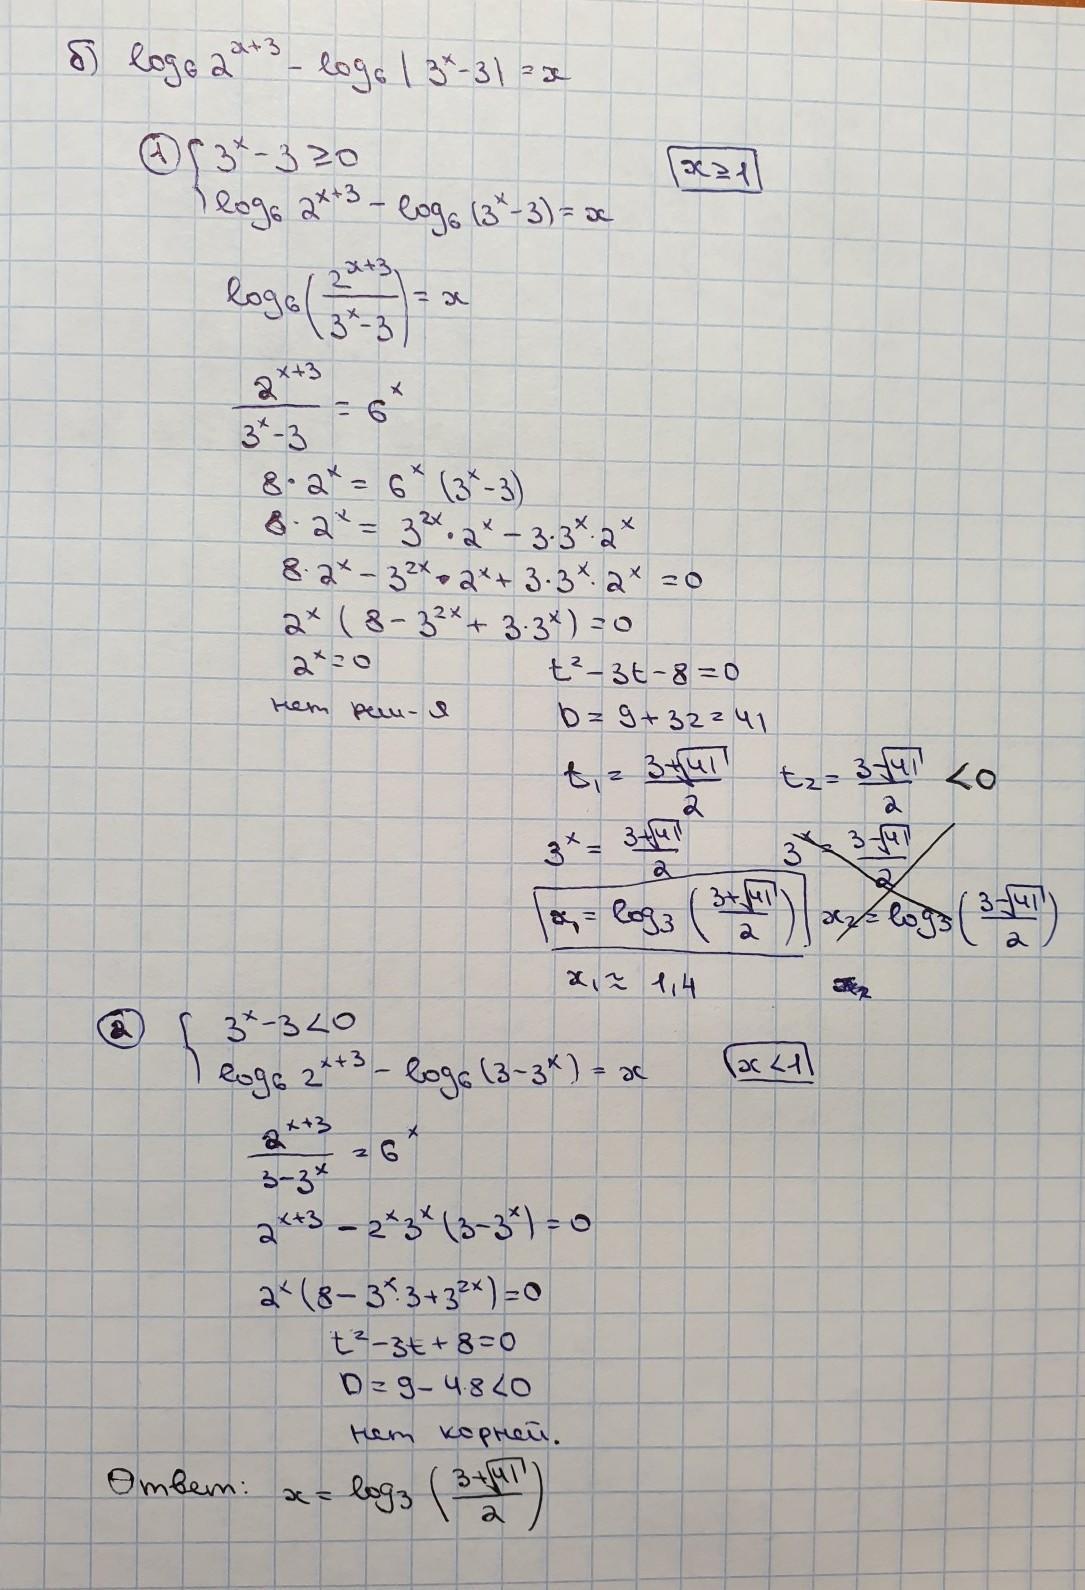 б) log₆ 2^(x+3) - log₆ |3^x - 3| = x
① { 3^x - 3 ≥ 0 x ≥ 1
log₆ 2^(x+3) - log₆ (3^x - 3) = x
log₆ (2^(x+3) / (3^x - 3)) = x
2^(x+3) / (3^x - 3) = 6^x
8 · 2^x = 6^x (3^x - 3)
8 · 2^x = 3^(2x) · 2^x - 3 · 3^x · 2^x
8 · 2^x - 3^(2x) · 2^x + 3 · 3^x · 2^x = 0
2^x (8 - 3^(2x) + 3 · 3^x) = 0
2^x = 0 t² - 3t - 8 = 0
нет реш-я D = 9 + 32 = 41
t₁ = (3+√41)/2 t₂ = (3-√41)/2 < 0
3^x = (3+√41)/2 3^x = (3-√41)/2
x₁ = log₃ ((3+√41)/2) x₂ = log₃ ((3-√41)/2)
x₁ ≈ 1,4
② { 3^x - 3 < 0
log₆ 2^(x+3) - log₆ (3 - 3^x) = x x < 1
2^(x+3) / (3 - 3^x) = 6^x
2^(x+3) - 2^x 3^x (3 - 3^x) = 0
2^x (8 - 3^x · 3 + 3^(2x)) = 0
t² - 3t + 8 = 0
D = 9 - 4·8 < 0
нет корней.
Ответ: x = log₃ ((3+√41)/2)